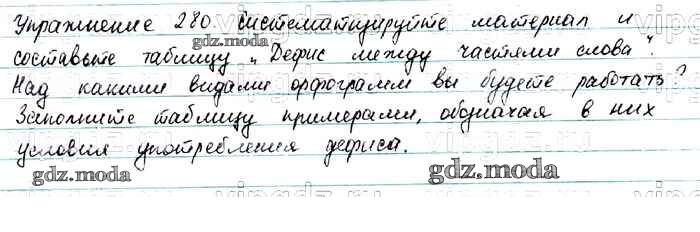 Упражнение 280. Систематизируйте материал и
составьте таблицу „Дефис между частями слова".
Над какими видами орфограмм вы будете работать?
Заполните таблицу примерами, обозначая в них
условия употребления дефиса.
gdz.moda
gdz.moda
gdz.moda
gdz.moda